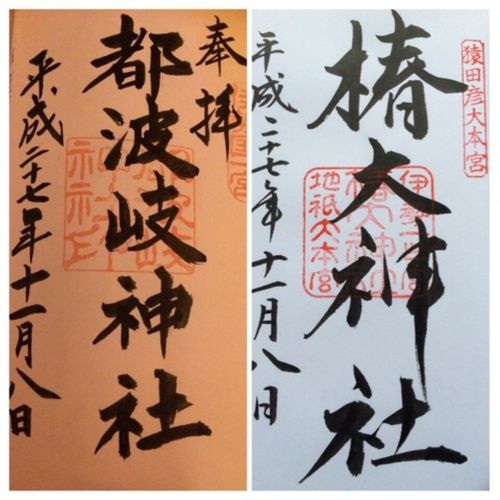 奉拝
都波岐神社
平成二十七年十一月八日
猿田彦大本宮
椿大神社
地祇大本宮
平成二十七年十一月八日